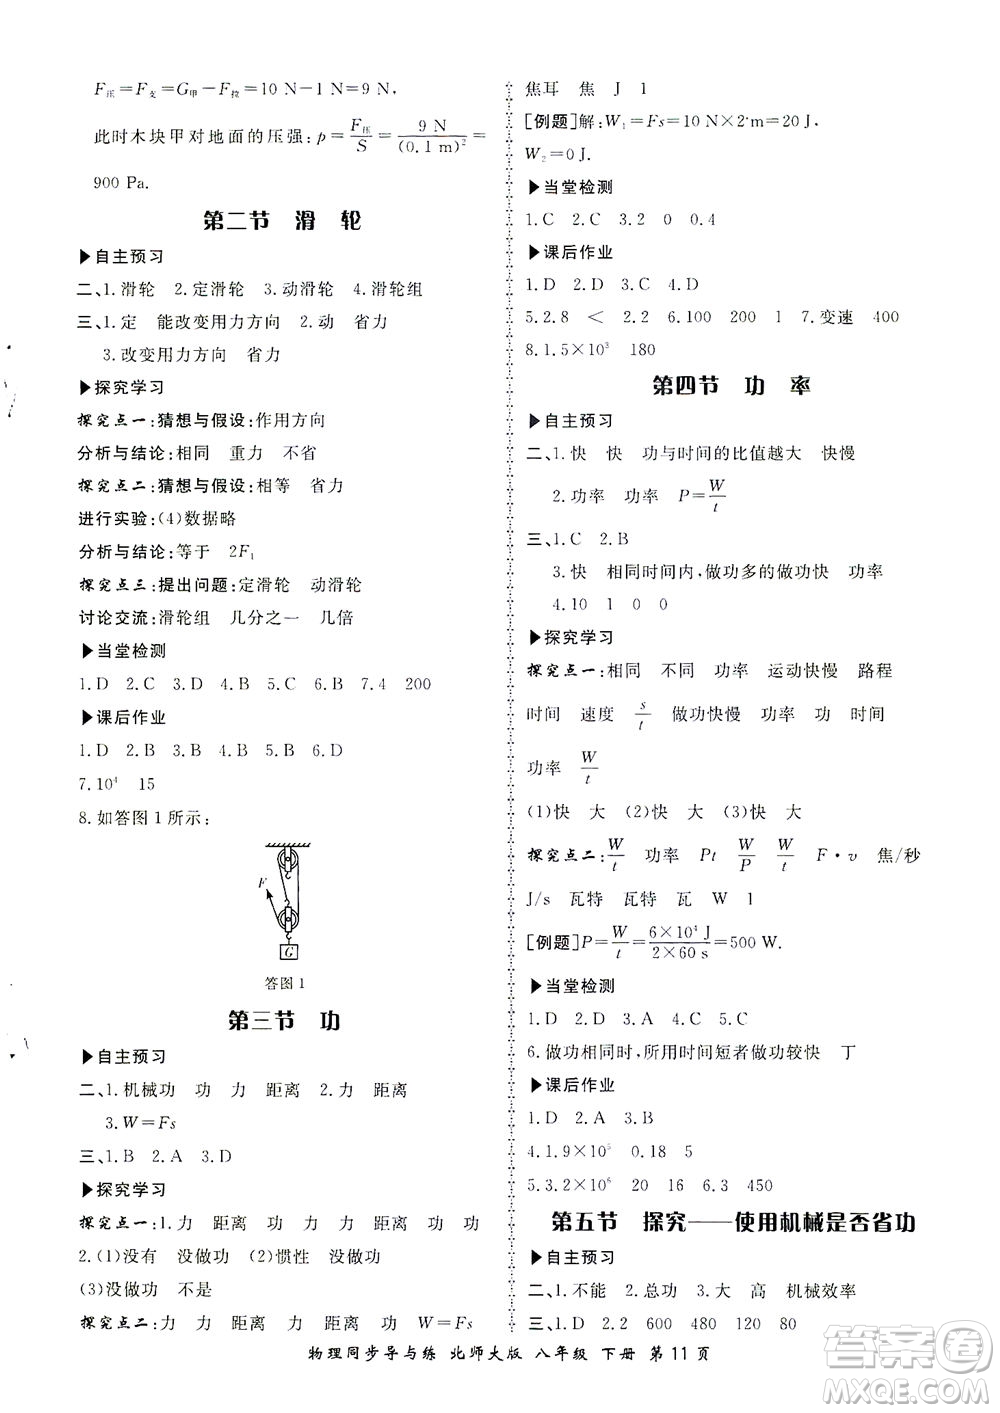 F压＝F支＝G甲－F拉＝10 N－1 N＝9 N，
此时木块甲对地面的压强：p＝F压/S＝9 N/(0.1 m)²＝
900 Pa.
第二节 滑轮
▶自主预习
二、1.滑轮 2.定滑轮 3.动滑轮 4.滑轮组
三、1.定 能改变用力方向 2.动 省力
3.改变用力方向 省力
▶探究学习
探究点一：猜想与假设：作用方向
分析与结论：相同 重力 不省
探究点二：猜想与假设：相等 省力
进行实验：(4)数据略
分析与结论：等于 2F₁
探究点三：提出问题：定滑轮 动滑轮
讨论交流：滑轮组 几分之一 几倍
▶当堂检测
1.D 2.C 3.D 4.B 5.C 6.B 7.4 200
▶课后作业
1.D 2.B 3.B 4.B 5.B 6.D
7.10⁴ 15
8.如答图1所示：
F
G
答图1
第三节 功
▶自主预习
二、1.机械功 功 力 距离 2.力 距离
3.W＝Fs
三、1.B 2.A 3.D
▶探究学习
探究点一：1.力 距离 功 力 距离 功 功
2.(1)没有 没做功 (2)惯性 没做功
(3)没做功 不是
探究点二：力 力 距离 力 距离 力 功 W＝Fs
焦耳 焦 J 1
[例题]解：W₁＝Fs＝10 N×2 m＝20 J，
W₂＝0 J.
▶当堂检测
1.C 2.C 3.2 0 0.4
▶课后作业
1.D 2.D 3.C 4.D
5.2.8 ＜ 2.2 6.100 200 1 7.变速 400
8.1.5×10³ 180
第四节 功率
▶自主预习
二、1.快 快 功与时间的比值越大 快慢
2.功率 功率 P＝W/t
三、1.C 2.B
3.快 相同时间内，做功多的做功快 功率
4.10 1 0 0
▶探究学习
探究点一：相同 不同 功率 运动快慢 路程
时间 速度 s/t 做功快慢 功率 功 时间
功率 W/t
(1)快 大 (2)快 大 (3)快 大
探究点二：W/t 功率 Pt W/P W/t F·v 焦/秒
J/s 瓦特 瓦特 瓦 W 1
[例题]P＝W/t＝6×10⁴ J/2×60 s＝500 W.
▶当堂检测
1.D 2.D 3.D 4.C 5.C
6.做功相同时，所用时间短者做功较快 丁
▶课后作业
1.D 2.A 3.B
4.1.9×10⁵ 0.18 5
5.3.2×10⁶ 20 16 6.3 450
第五节 探究——使用机械是否省功
▶自主预习
二、1.不能 2.总功 3.大 高 机械效率
三、1.D 2.2 600 480 120 80
物理同步导与练 北师大版 八年级 下册 第11页
答案圈
MXQE.COM